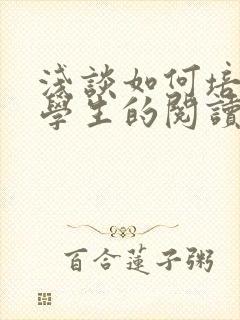 淺談如何培
學生的閱讀
百合蓮子粥